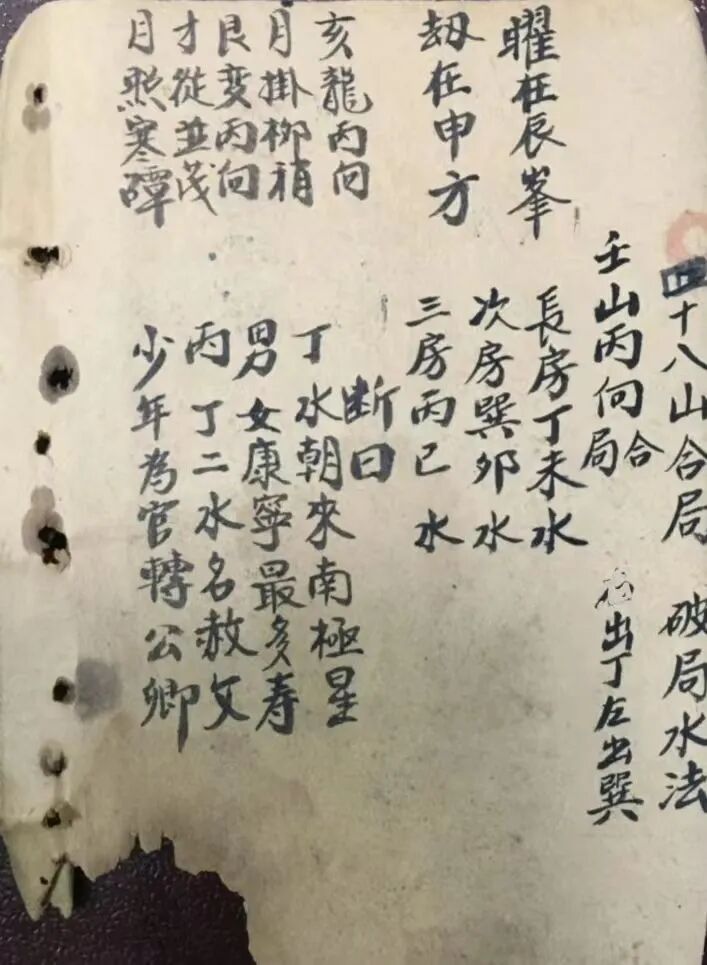 四十八山合局 破局水法
壬山丙向合局 出丁左出巽
曜在辰峯
長房丁未水
劫在申方
次房巽卯水
三房丙巳水
亥龍丙向
月掛柳稍
艮変丙向
才従並茂
月照寒潭
断曰
丁水朝來南極星
男女康寧最多寿
丙丁二水名赦文
少年為官轉公卿